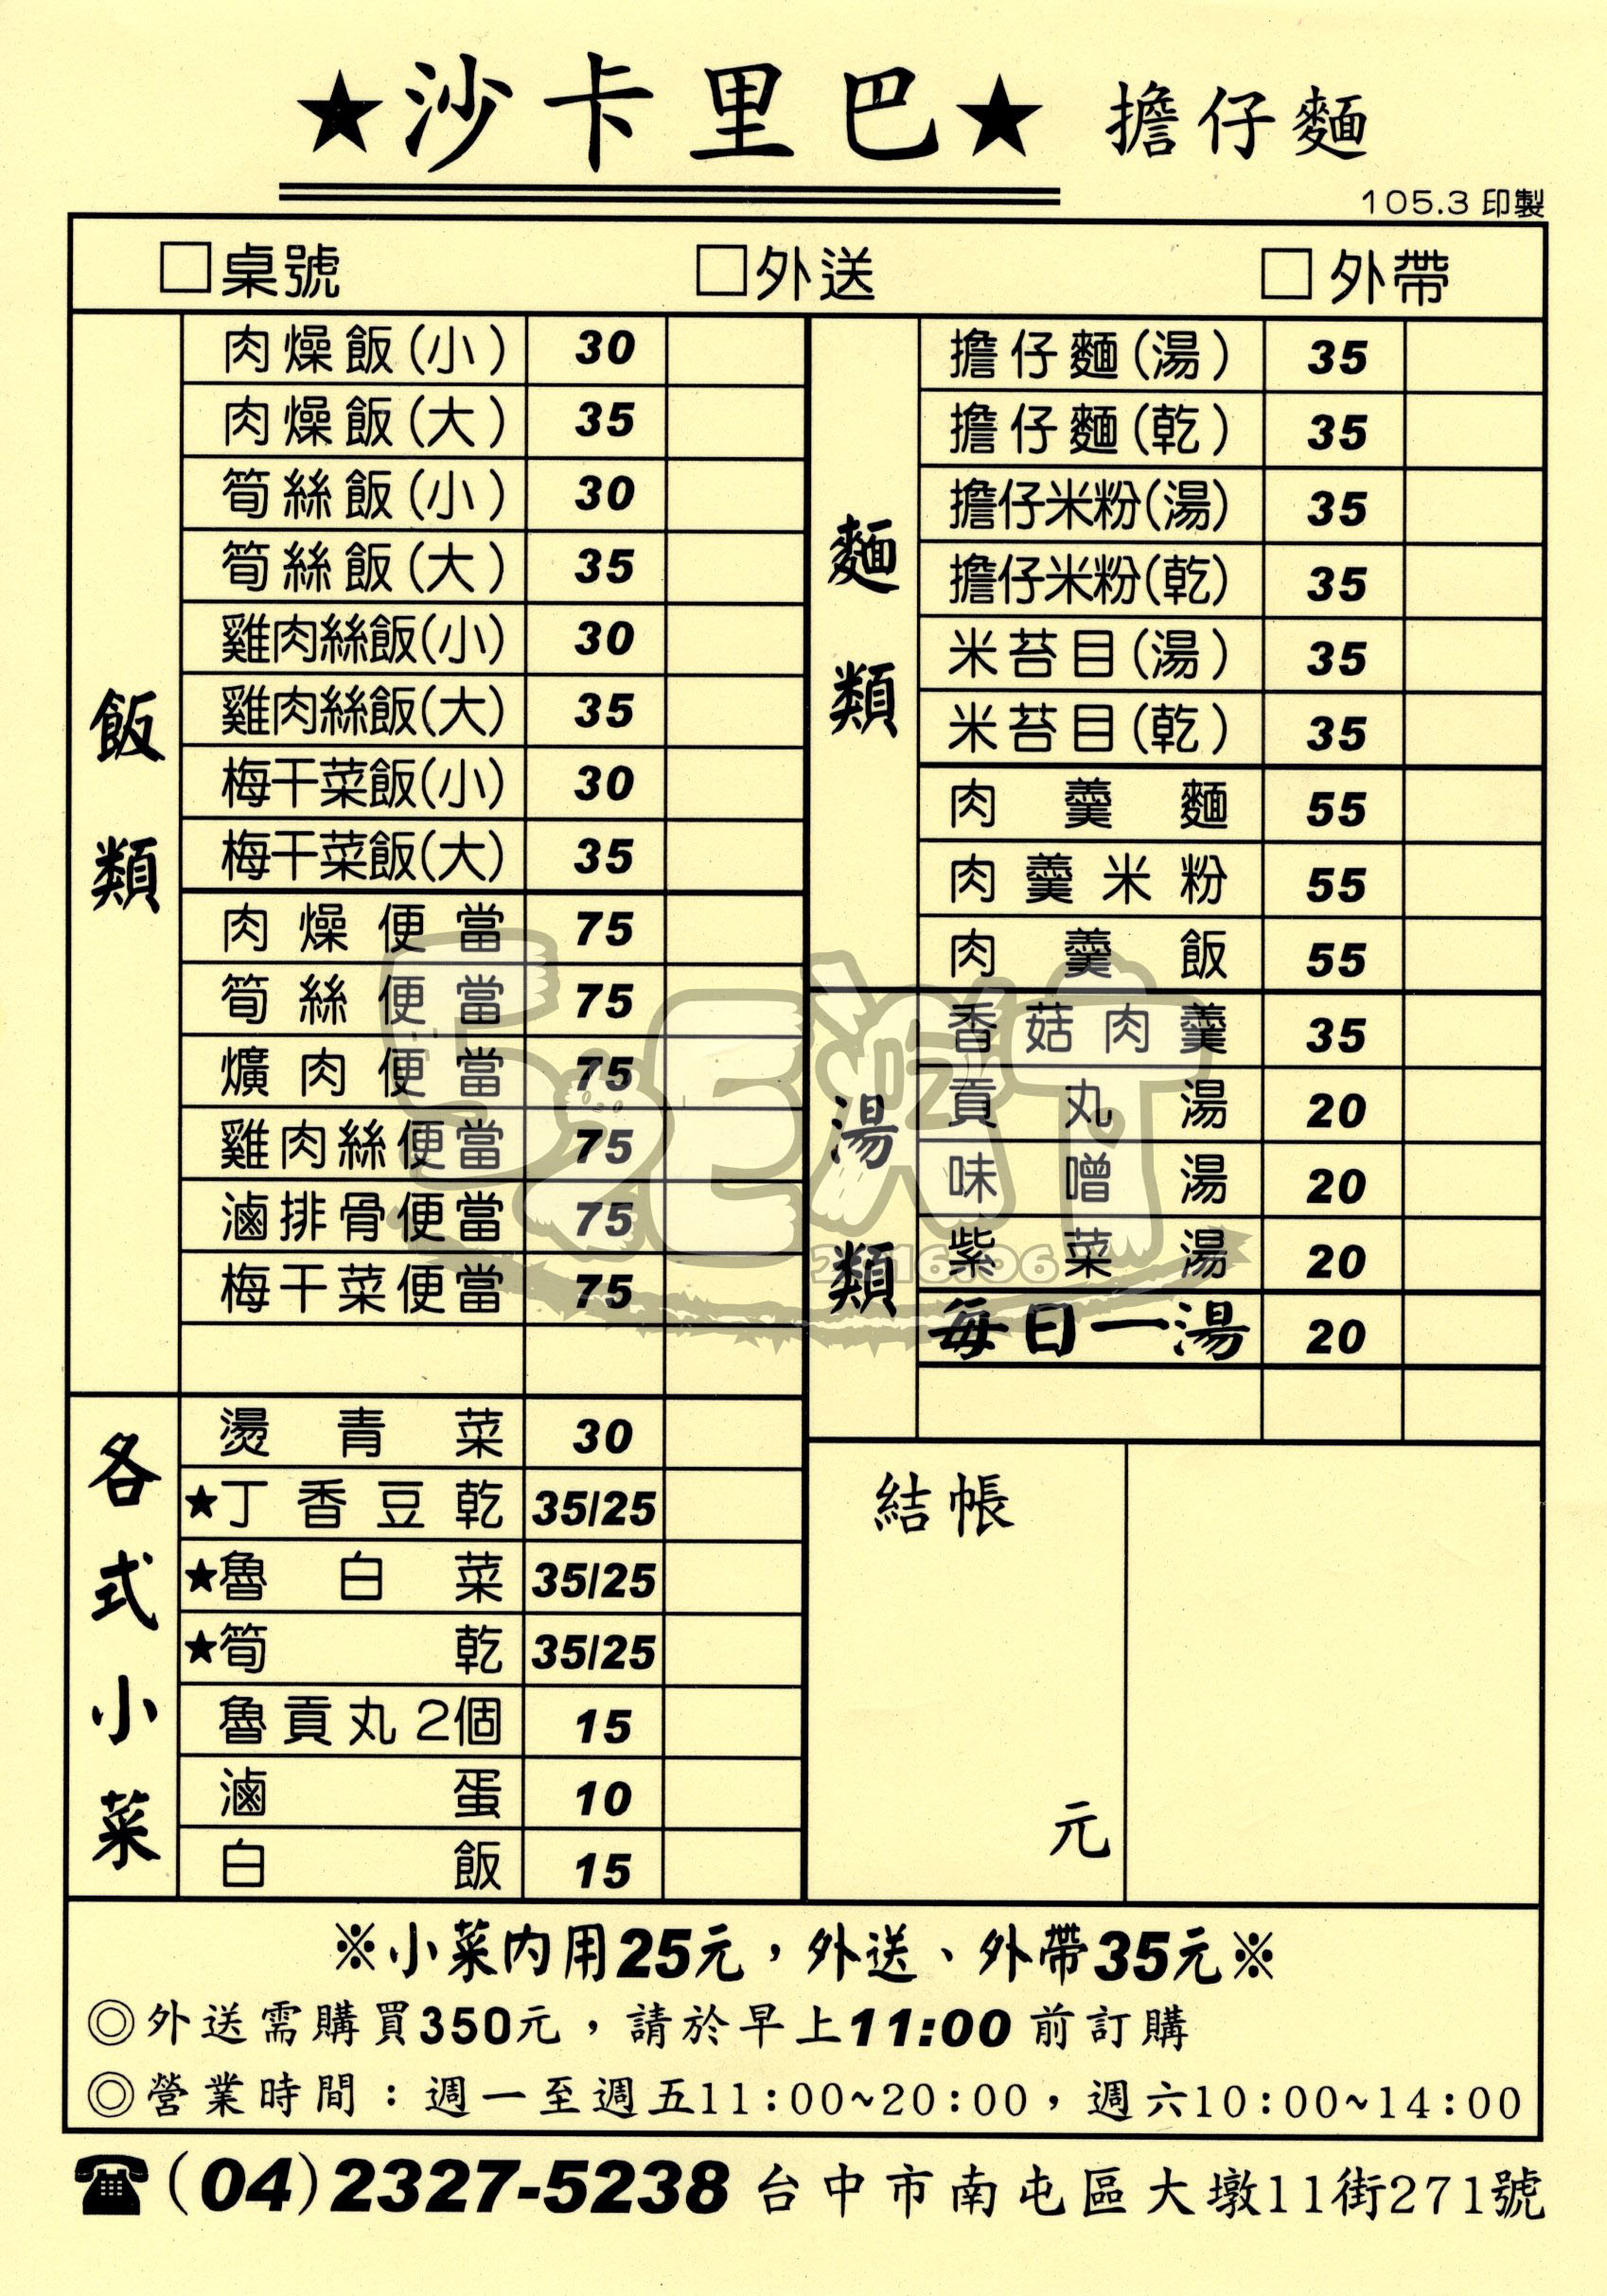 ★沙卡里巴★ 擔仔麵
105.3 印製
□桌號 □外送 □外帶
飯類
肉燥飯(小) 30
肉燥飯(大) 35
筍絲飯(小) 30
筍絲飯(大) 35
雞肉絲飯(小) 30
雞肉絲飯(大) 35
梅干菜飯(小) 30
梅干菜飯(大) 35
肉燥便當 75
筍絲便當 75
爌肉便當 75
雞肉絲便當 75
滷排骨便當 75
梅干菜便當 75
各式小菜
燙青菜 30
★丁香豆乾 35/25
★魯白菜 35/25
★筍乾 35/25
魯貢丸2個 15
滷蛋 10
白飯 15
麵類
擔仔麵(湯) 35
擔仔麵(乾) 35
擔仔米粉(湯) 35
擔仔米粉(乾) 35
米苔目(湯) 35
米苔目(乾) 35
肉羹麵 55
肉羹米粉 55
肉羹飯 55
湯類
香菇肉羹 35
貢丸湯 20
味噌湯 20
紫菜湯 20
每日一湯 20
結帳
元
※小菜內用25元，外送、外帶35元※
◎外送需購買350元，請於早上11:00前訂購
◎營業時間：週一至週五11:00~20:00，週六10:00~14:00
☎(04)2327-5238 台中市南屯區大墩11街271號